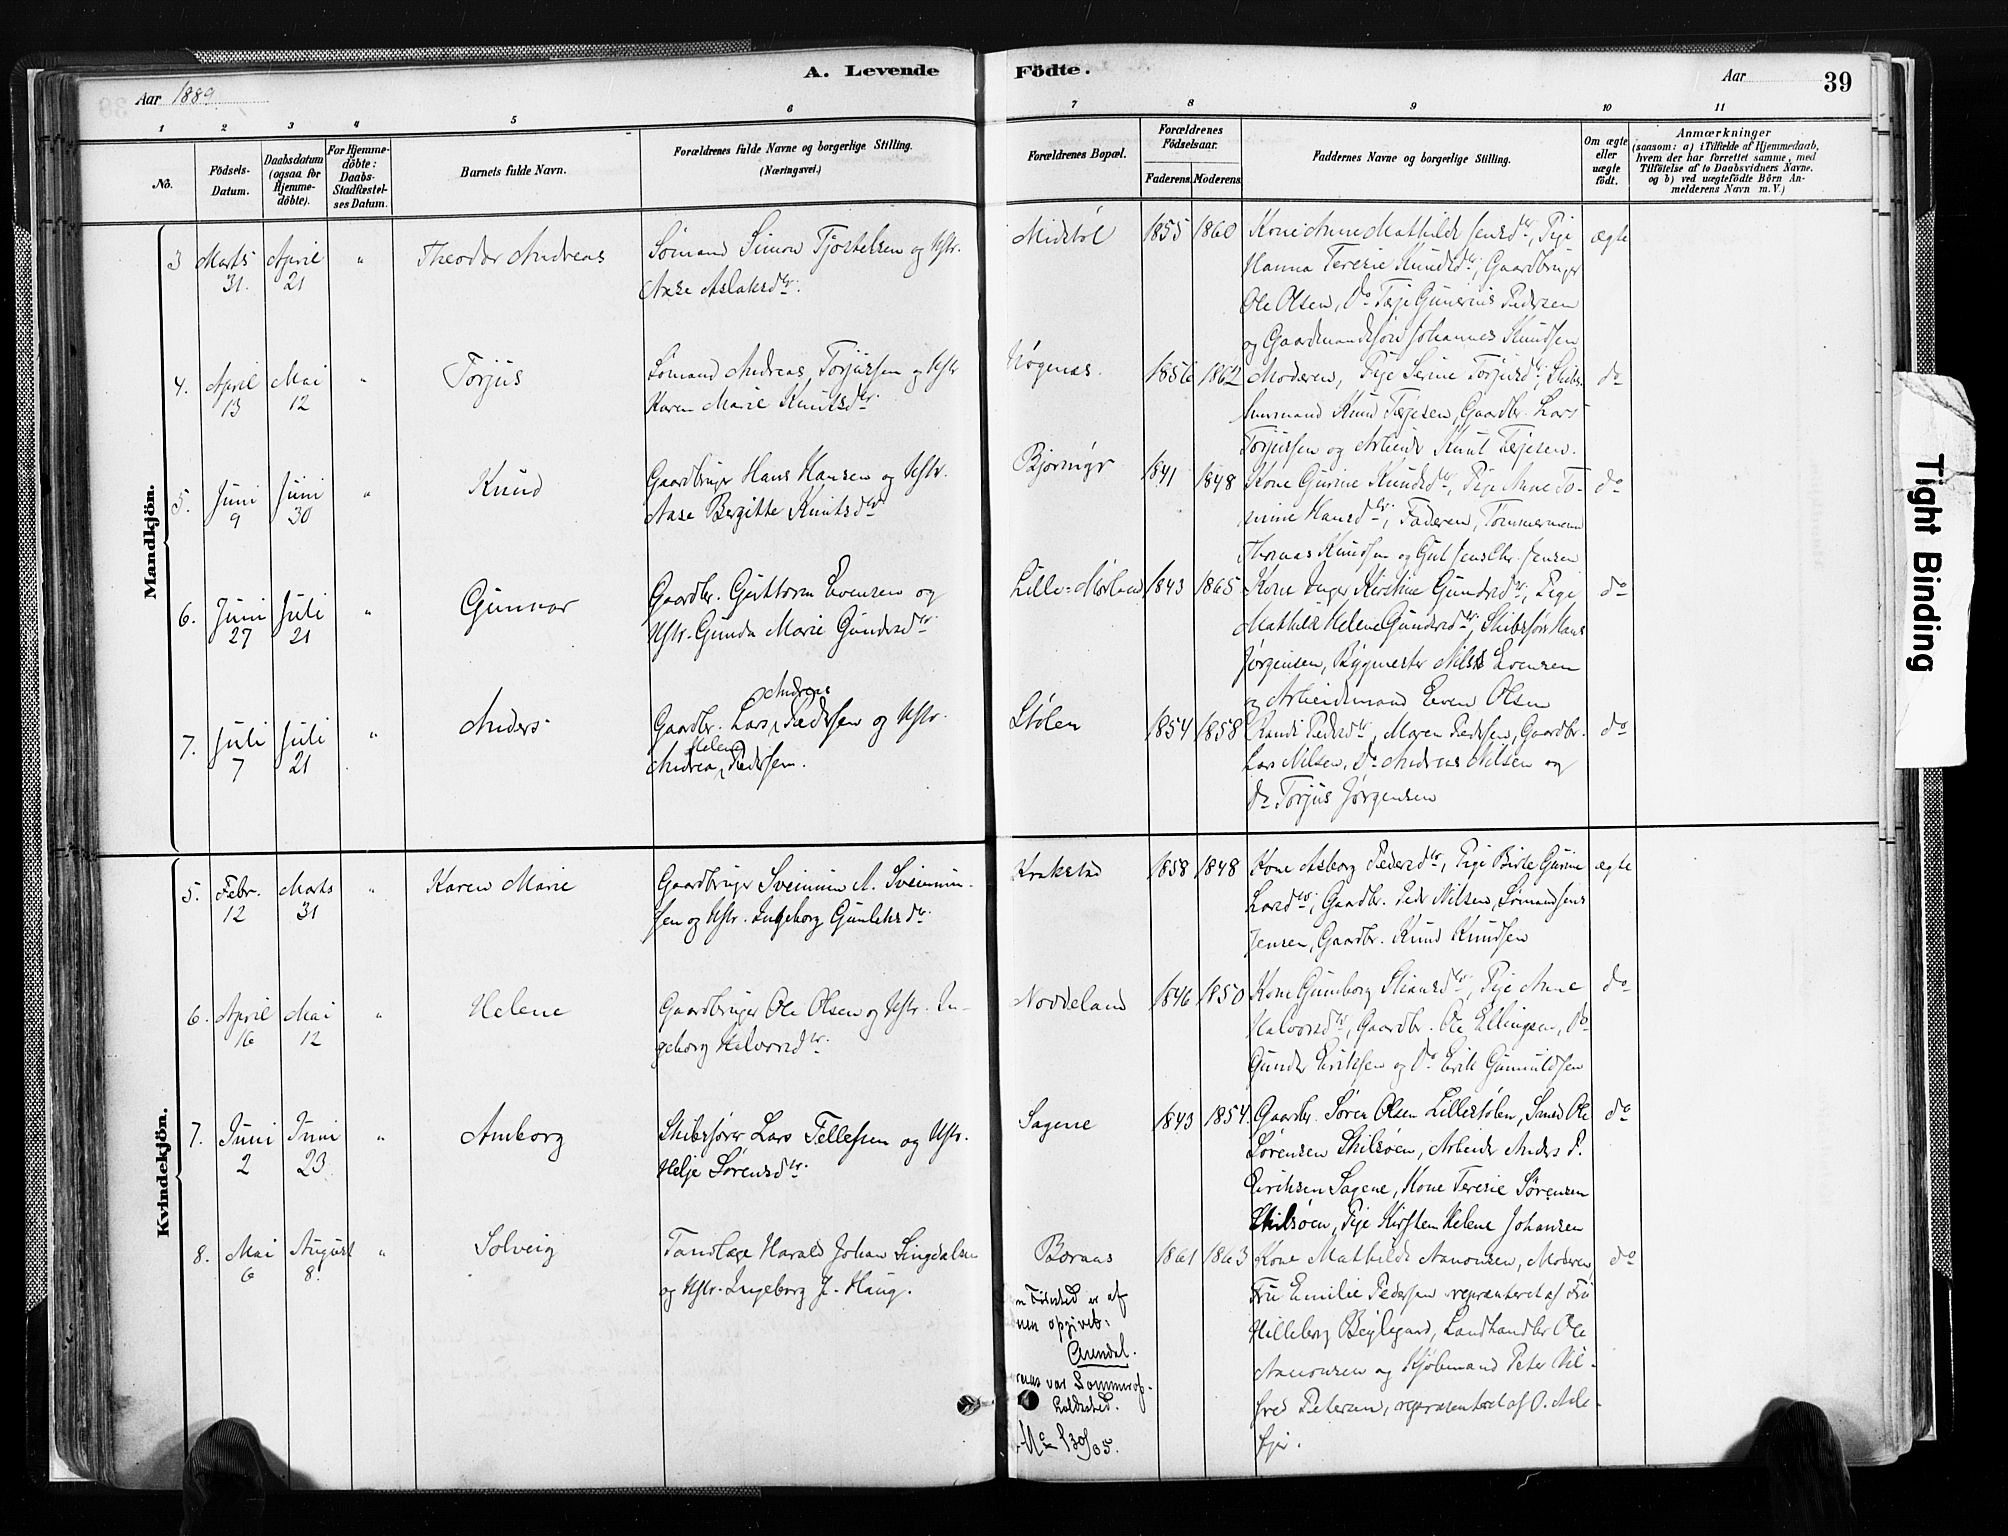 A. Levende Födte.
Aar 1889
Aar 39
1 2 3 4 5 6 7 8 9 10 11
No.
Födsels-
Datum.
Daabsdatum
(ogsaa for
Hjemme-
döbte).
For Hjemme-
döbte:
Daabs-
Stadfæstel-
ses Datum.
Barnets fulde Navn.
Forældrenes fulde Navne og borgerlige Stilling.
(Næringsvei.)
Forældrenes Bopæl.
Forældrenes
Födselsaar.
Faderens. Moderens.
Faddernes Navne og borgerlige Stilling.
Om ægte
eller
uægte
födt.
Anmærkninger
(saasom: a) i Tilfælde af Hjemmedaab,
hvem der har forrettet samme, med
Tilföielse af to Daabsvidners Navne.
og b) ved uægtefödte Börn An-
melderens Navn m. V.)
Mandkjön.
3 Marts 31. April 21 " Theodor Andreas
Sømand Simon Tjostelsen og Hstr.
Aase Aslaksdtr.
Midtbøl 1855 1860
Kone Anne Mathilde Jensdtr, Pige
Hanna Teresie Knudsdtr, Gaardbruger
Ole Olsen, Do Terje Gunerius Pedersen
og Gaardmandssøn Johannes Knudsen
ægte
4. April 13 Mai 12 " Torjus
Sømand Andreas Torjussen og Hstr
Karen Marie Knutsdtr.
Høgenæs. 1856 1862
Moderen, Pige Serine Torjusdtr, Skibs-
tømmermand Knud Terjesen, Gaardbr. Lars
Torjussen og Arbeider Knut Terjesen.
do
5. Juni 9 Juni 30 " Knud
Gaardbruger Hans Hansen og Hstr.
Aase Bergitte Knutsdtr
Bjørmyr 1841 1848
Kone Gurine Knudsdtr, Pige Anne To-
mine Hansdtr, Faderen, Tømmermand
Thomas Knudsen og Gut Jens Chr. Jensen
do
6. Juni 27 Juli 21 " Gunnar
Gaardbr. Guttorm Evensen og
Hstr. Gunda Marie Gundersdtr
Lille-Mørland 1843 1865
Kone Inger Kirstine Gundersdtr, Pige
Mathilde Helene Gundersdtr, Skibsfører Hans
Jørgensen, Bygmester Niels Evensen
og Arbeidsmand Even Olsen
do
7. Juli 7 Juli 21 " Anders
Andreas
Gaardbr. Lars Pedersen og Hstr.
Helene
Andrea Pedersen.
Stølen 1854 1858
Randi Pedersdtr, Maren Pedersen, Gaardbr.
Lars Nilsen, Do Andreas Nilsen og
Do Torjus Jørgensen
do
Kvindekjön.
5. Febr. 12 Marts 31 " Karen Marie
Gaardbruger Sveinum A. Sveinum-
sen og Hstr. Ingeborg Gunleksdtr.
Krakstad 1858 1848
Kone Asborg Pedersdtr, Pige Birte Gurine
Larsdtr, Gaardbr. Peder Nilsen, Sømand Jens
Jensen, Gaardbr. Knud Knudsen
ægte
6. April 16 Mai 12 " Helene
Gaardbruger Ole Olsen og Hstr. In-
geborg Halvorsdtr.
Noddeland 1846 1850
Kone Gunborg Stiansdtr, Pige Anne
Halvorsdtr, Gaardbr. Ole Ellingsen, Do
Gunder Eriksen og Do Erik Gunnuldsen
do
7. Juni 2 Juni 23 " Amborg
Skibsfører Lars Tellefsen og Hstr.
Helje Sørensdtr.
Sagene 1843 1854.
Gaardbr. Søren Olsen Lillestølen, Smed Ole
Sørensen Skilsøen, Arbeider Anders P.
Eriksen Sagene, Kone Teresie Sørensen
Skilsøen, Pige Kirsten Helene Johansen
do
8. Mai 6 August 8. " Solveig
Tandlæge Harald Johan Lingdalsen
og Hstr. Ingeborg J. Haug.
Boraas 1861 1863
Kone Mathilde Aanonsen, Moderen,
Fru Emilie Pedersen repræsenteret af Fru
Hilleborg Beylegard, Landhandler Ole
Aanonsen og Kjøbmand Peter Vil-
fred Petersen, repræsenteret af O. Ade-
do
Fødested er af
opgivet:
Arendal.
var Sommerop-
holdssted.
Tight Binding